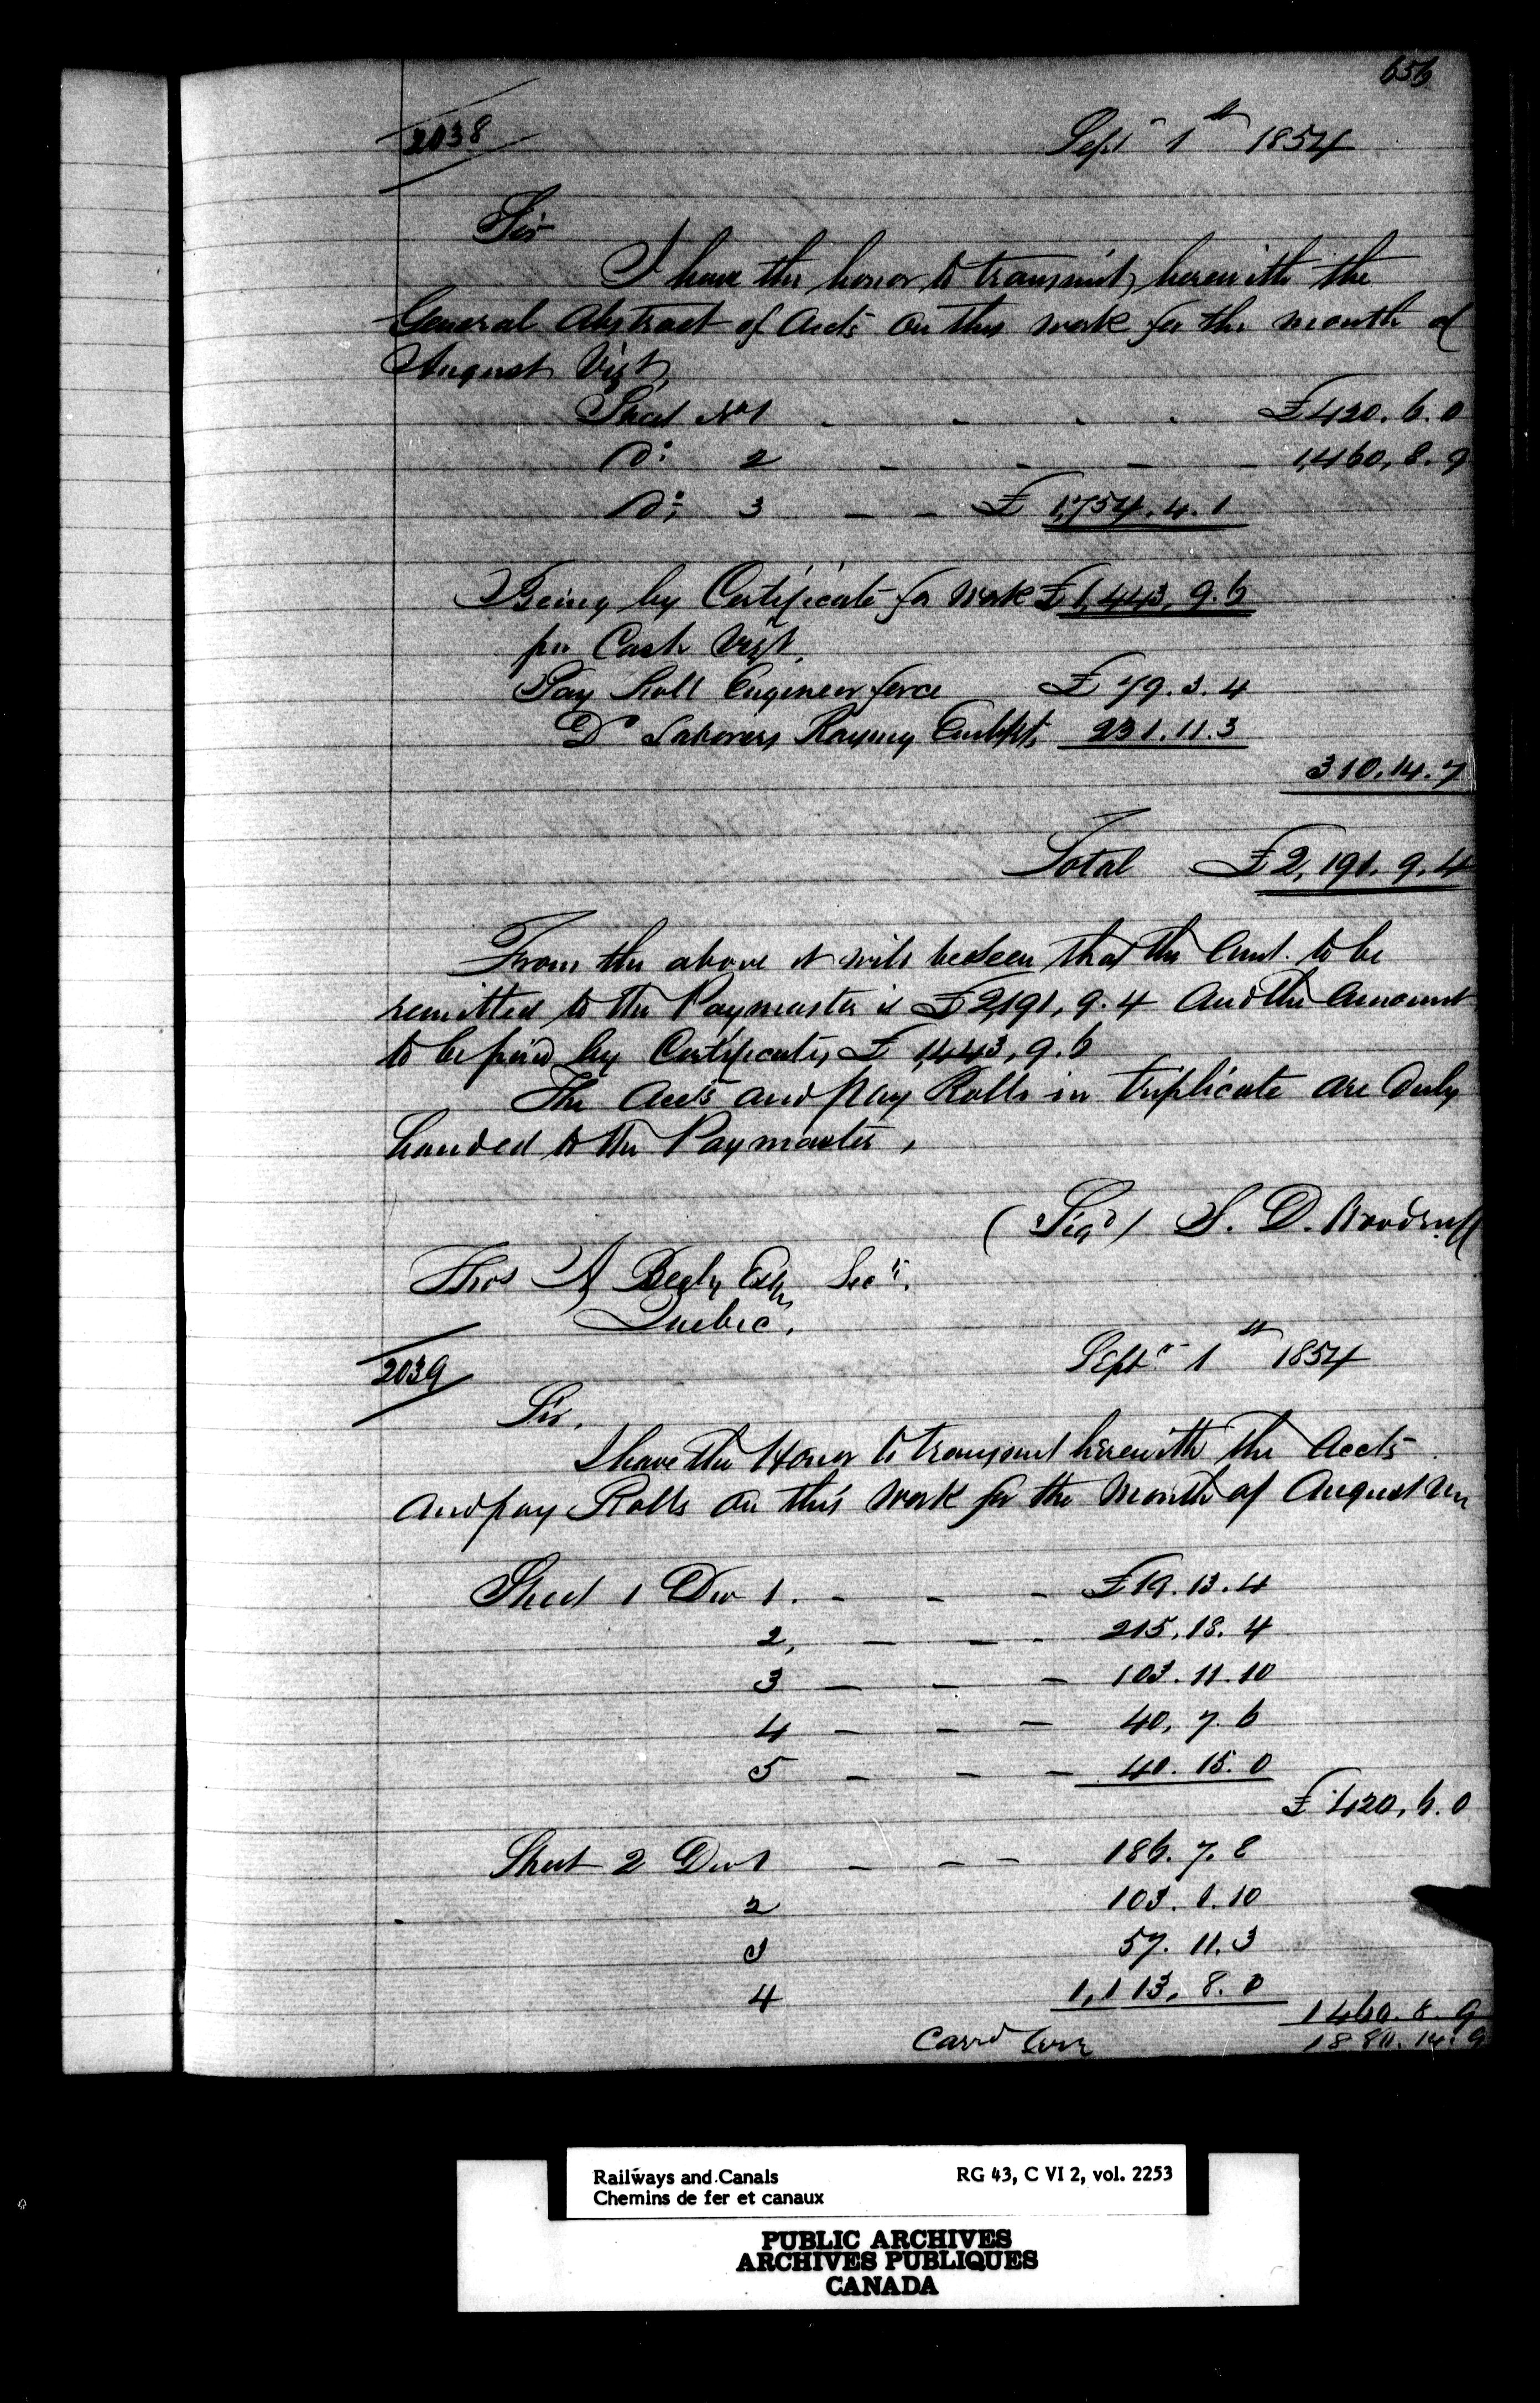 656
2038
Sept 1st 1854
Sir
I have the honor to transmit herewith the
General Abstract of Accts on this work for the month of
August Vizt,
Sheet No 1 - - - - £420. 6. 0
Do 2 - - - - 1,460, 8. 9
Do, 3 - - £ 1,754. 4. 1
Being by Certificate for Work £1,443, 9. 6
per Cash Vizt,
Pay Roll Engineer force £ 79. 3. 4
Do Laborers Raising Embkt, 231. 11. 3
310. 14. 7
Total £2, 191. 9. 4
From the above it will be seen that the Amt. to be
remitted to the Paymaster is £2,191, 9. 4 And the Amount
to be paid by Certificate, £ 1,443, 9. 6
The Accts and pay Rolls in triplicate are duly
handed to the Paymaster,
(Sigd) S. D. Woodruff
Thos A Begly Esq, Secy.
Quebec,
2039
Septr 1st 1854
Sir,
I have the Honor to transmit herewith the Accts
and pay Rolls on this work for the Month of August
Sheet 1 Div 1. - - - £19. 13. 4
2, - - - 215. 18. 4
3 - - - 103. 11. 10
4 - - - 40, 7. 6
5 - - - 40. 15. 0
£ 420, 6. 0
Sheet 2 Div 1 - - - 186. 7. 8
2 103. 1. 10
3 57. 11. 3
4 1,113, 8. 0
1460. 8. 9
Carrd Over 1880. 14. 9
Railways and Canals RG 43, C VI 2, vol. 2253
Chemins de fer et canaux
PUBLIC ARCHIVES
ARCHIVES PUBLIQUES
CANADA